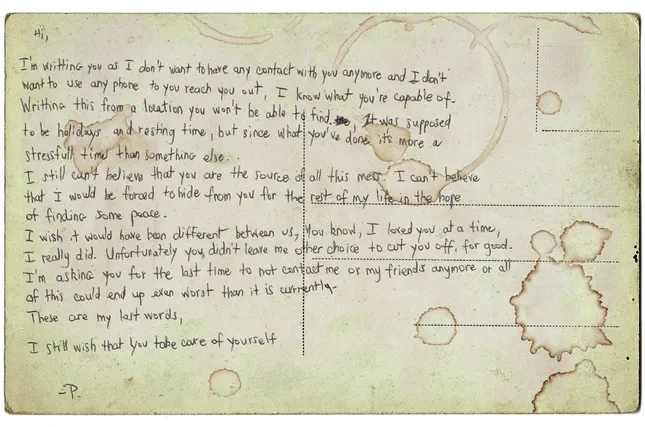 Hi,
I'm writting you as I don't want to have any contact with you anymore and I don't
want to use any phone to you reach you out, I know what you're capable of.
Writting this from a location you won't be able to find. It was supposed
to be holidays and resting time, but since what you've done it's more a
stressfull time than something else..
I still can't believe that you are the source of all this mess. I can't believe
that I would be forced to hide from you for the rest of my life in the hope
of finding some peace.
I wish it would have been different between us, You know, I loved you at a time,
I really did. Unfortunately you didn't leave me other choice to cut you off, for good.
I'm asking you for the last time to not contact me or my friends anymore or all
of this could end up even worst than it is currently.
These are my last words,
I still wish that you take care of yourself
-P.